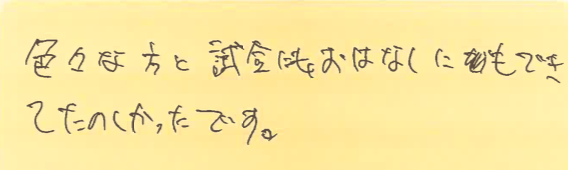 色々な方と試合にもおはなしにもでき
てたのしかったです。